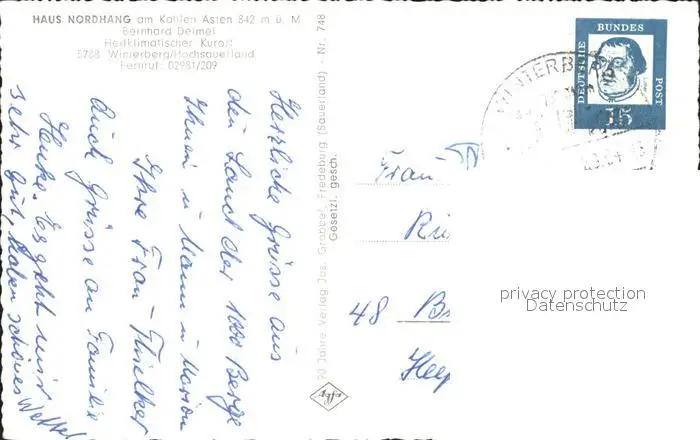 HAUS NORDHANG am Kahlen Asten 842 m ü. M
Bernhard Deimel
Heilklimatischer Kurort
5788 Winterberg/Hochsauerland
Fernruf: 02981/209
Herzliche Grüsse aus
den Land der 1000 Berge
Ihnen u. Mann u. Marion
Ihre Frau Thielker
Auch Grüsse an Familie
Henke. Es geht mir
sehr gut, haben schönes Wetter
30 Jahre Verlag Jos. Grobbel, Fredeburg (Sauerland) - Nr. 748
Gesetzl. gesch.
DEUTSCHE BUNDES POST
15
WINTERBERG
Frau
48
privacy protection
Datenschutz